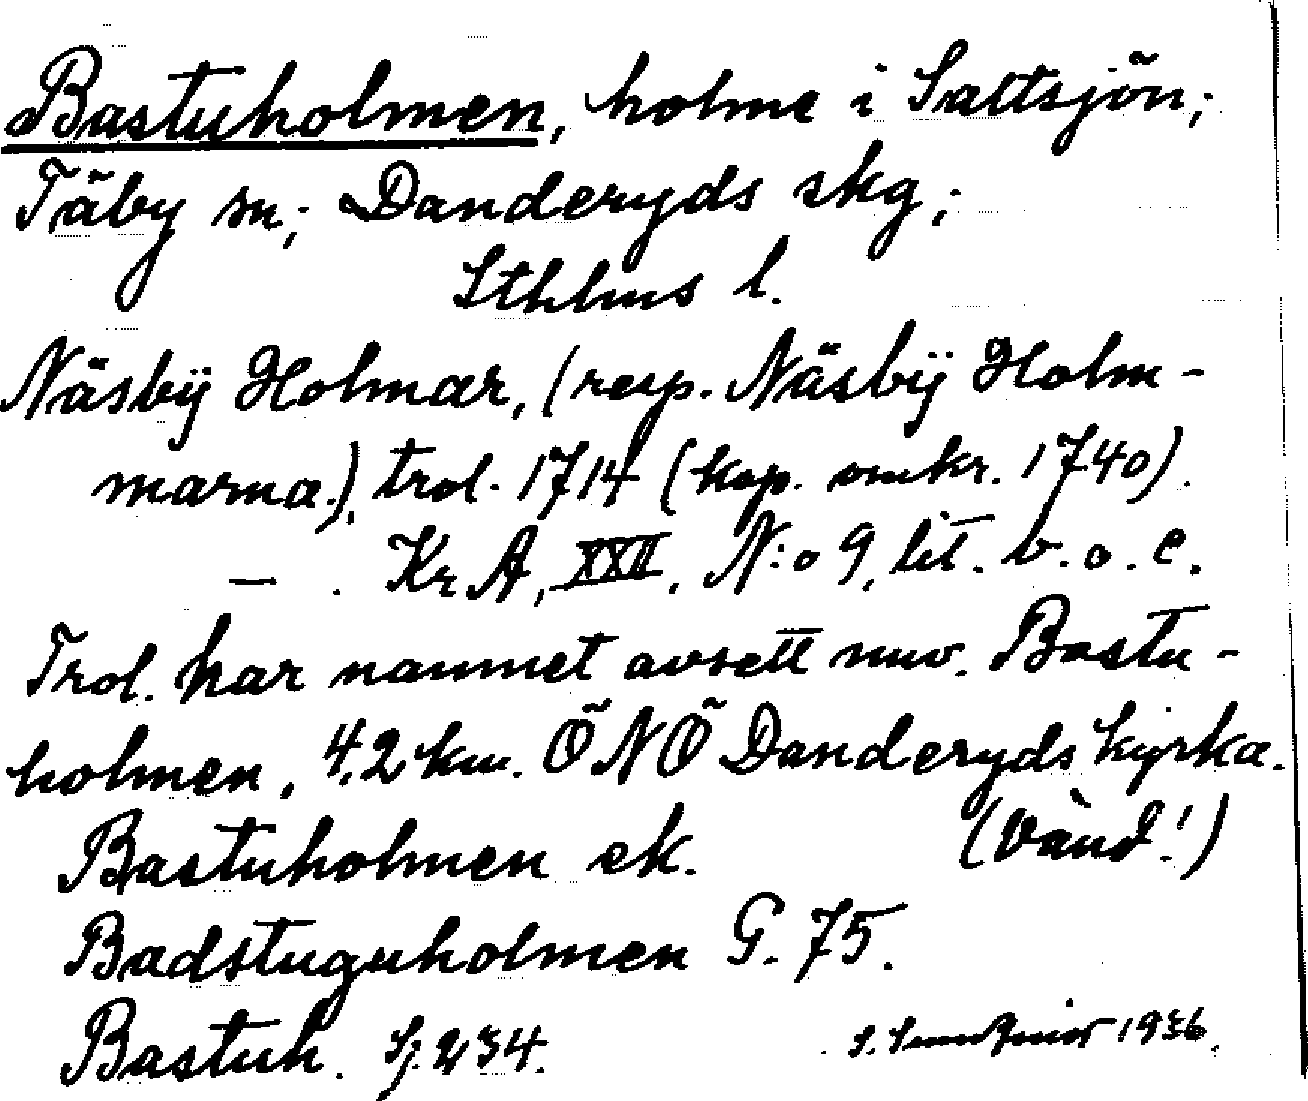 Bastuholmen, holme i Saltsjön;
Täby sn; Danderyds skg;
Sthlms l.
Näsbÿ Holmar, (resp. Näsbÿ Holm-
marna.), trol. 1714 (kop. omkr. 1740).
— . Kr. A, XXII, N:o 9, lit. b. o. c.
Trol. har namnet avsett nuv. Bastu-
holmen, 4,2 km. ÖNÖ Danderyds kyrka.
Bastuholmen ek. (Vänd!)
Badstuguholmen G. 75.
Bastuh. Sj. 234. S. 1936.